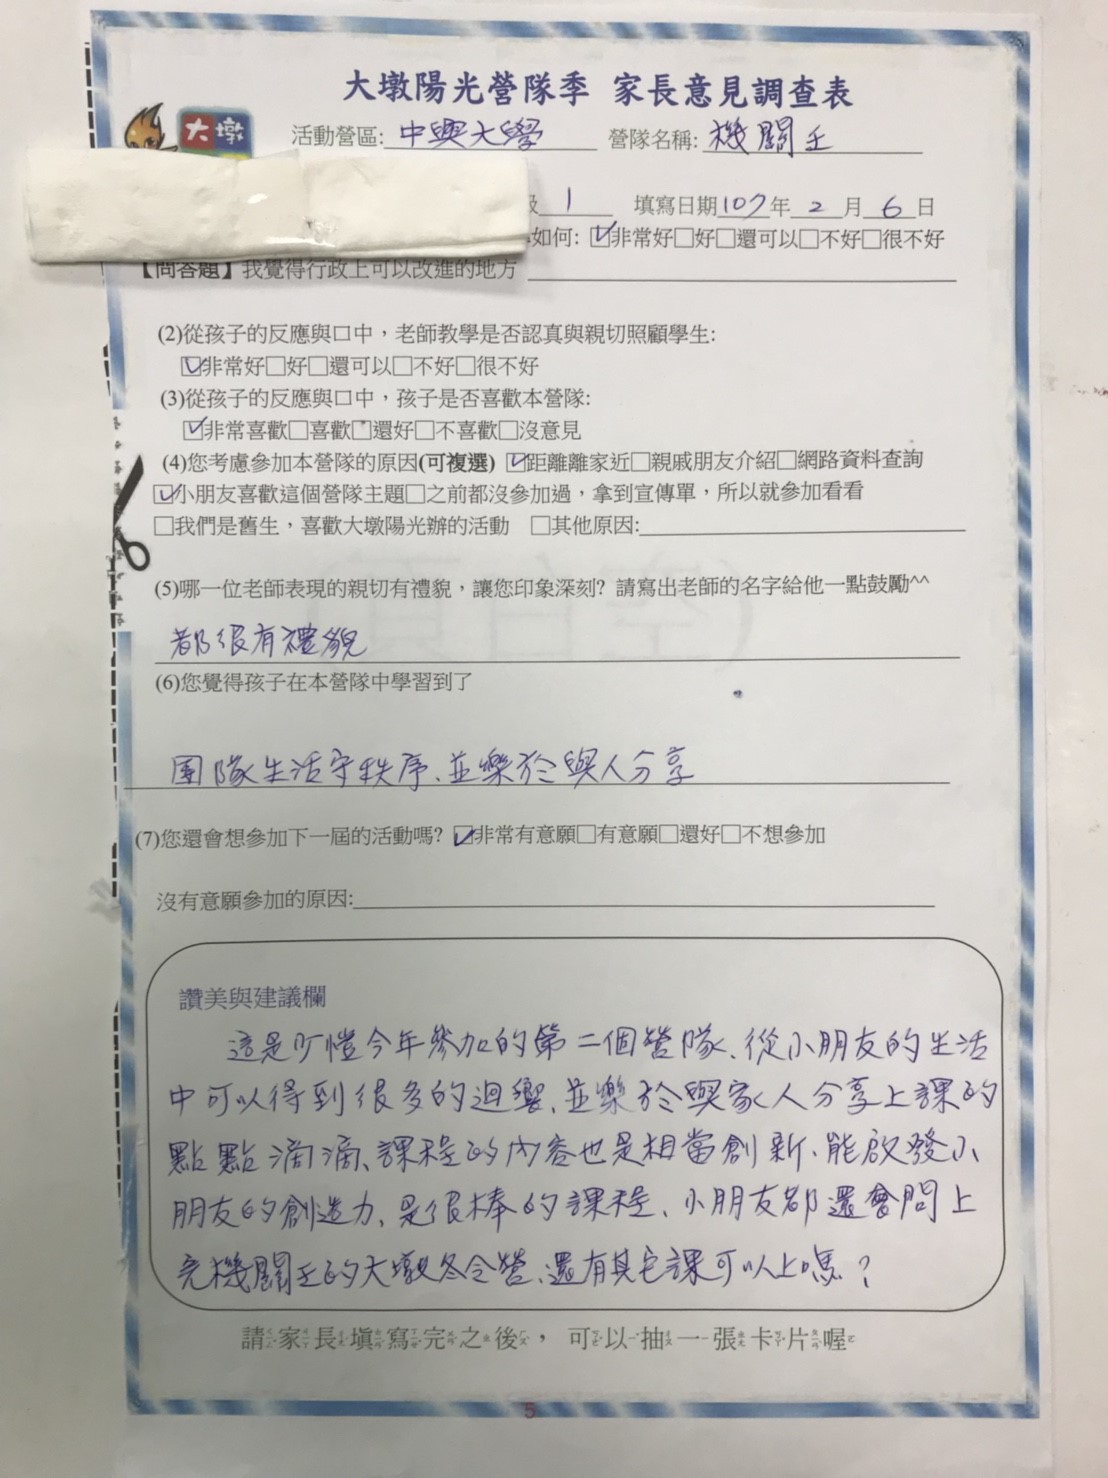 大墩陽光營隊季 家長意見調查表
大墩
活動營區:中興大學 營隊名稱:機關王
級 1 填寫日期107年2月6日
如何: ☑非常好□好□還可以□不好□很不好
【問答題】我覺得行政上可以改進的地方
(2)從孩子的反應與口中，老師教學是否認真與親切照顧學生:
☑非常好□好□還可以□不好□很不好
(3)從孩子的反應與口中，孩子是否喜歡本營隊:
☑非常喜歡□喜歡□還好□不喜歡□沒意見
(4)您考慮參加本營隊的原因(可複選) ☑距離離家近□親戚朋友介紹□網路資料查詢
☑小朋友喜歡這個營隊主題□之前都沒參加過，拿到宣傳單，所以就參加看看
□我們是舊生，喜歡大墩陽光辦的活動 □其他原因:
(5)哪一位老師表現的親切有禮貌，讓您印象深刻? 請寫出老師的名字給他一點鼓勵^^
都很有禮貌
(6)您覺得孩子在本營隊中學習到了
團隊生活守秩序、並樂於與人分享
(7)您還會想參加下一屆的活動嗎? ☑非常有意願□有意願□還好□不想參加
沒有意願參加的原因:
讚美與建議欄
這是叮愷今年參加的第二個營隊、從小朋友的生活
中可以得到很多的迴響、並樂於與家人分享上課的
點點滴滴、課程的內容也是相當創新、能啟發小
朋友的創造力、是很棒的課程、小朋友都還會問上
完機關王的大墩冬令營、還有其它課可以上嗎？
請家長填寫完之後，可以抽一張卡片喔
5